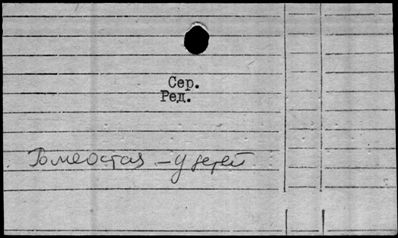 Сер.
Ред.
Гомеостаз – у детей